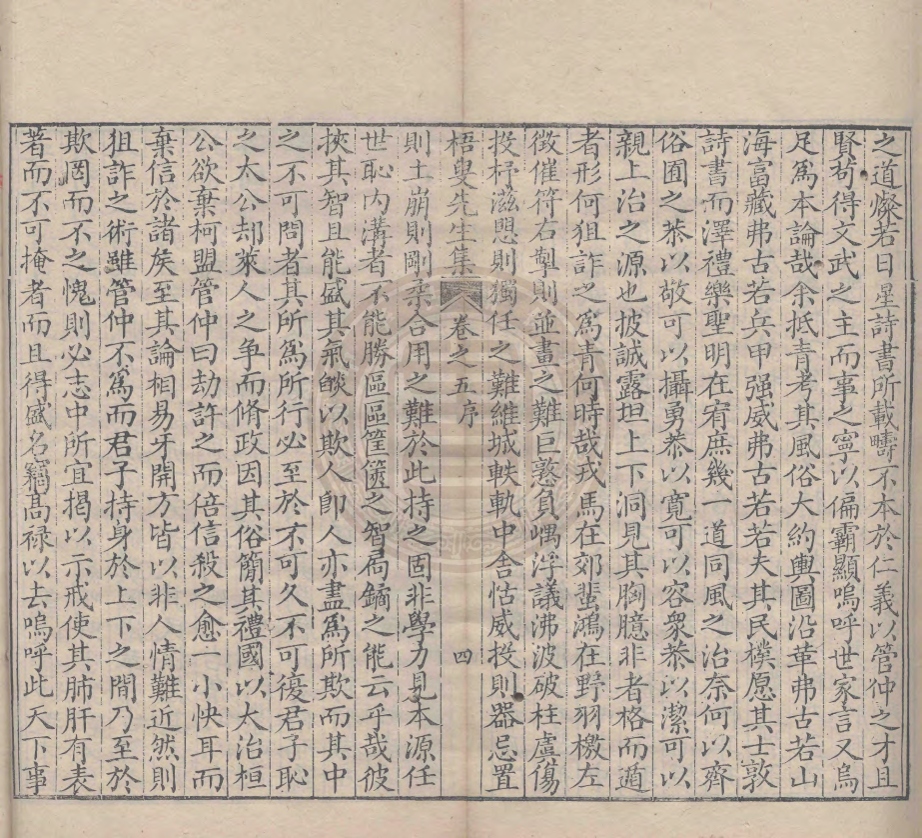 之道燦若日星詩書所載疇不本於仁義以管仲之才且
賢苟得文武之主而事之寧以偏霸顯嗚呼世家言又烏
足爲本論哉余抵青考其風俗大約輿圖沿革弗古若山
海富藏弗古若兵甲强威弗古若若夫其民樸愿其士敦
詩書而澤禮樂聖明在宥庶幾一道同風之治奈何以齊
俗囿之恭以敬可以攝勇恭以寬可以容衆恭以潔可以
親上治之源也披誠露坦上下洞見其胸臆非者格而遁
者形何狙詐之爲青何時哉戎馬在郊蜚鴻在野羽檄左
徵催符右掣則並畫之難巨憝負嵎浮議沸波破柱虞傷
投杼滋思則獨任之難維城軼軌中舍怙威投則器忌置
梧叟先生集 卷之五序 四
則土崩則剛柔合用之難於此持之固非學力見本源任
世恥內溝者不能勝區區筐篋之智扃鐍之能云乎哉彼
挾其智且能盛其氣燄以欺人卽人亦盡爲所欺而其中
之不可問者其所爲所行必至於不可久不可復君子恥
之太公却萊人之爭而脩政因其俗簡其禮國以大治桓
公欲棄柯盟管仲曰劫許之而倍信殺之愈一小快耳而
棄信於諸矦至其論相易牙開方皆以非人情難近然則
狙詐之術雖管仲不爲而君子持身於上下之間乃至於
欺罔而不之愧則必志中所宜揭以示戒使其肺肝有表
著而不可掩者而且得盛名竊高祿以去嗚呼此天下事